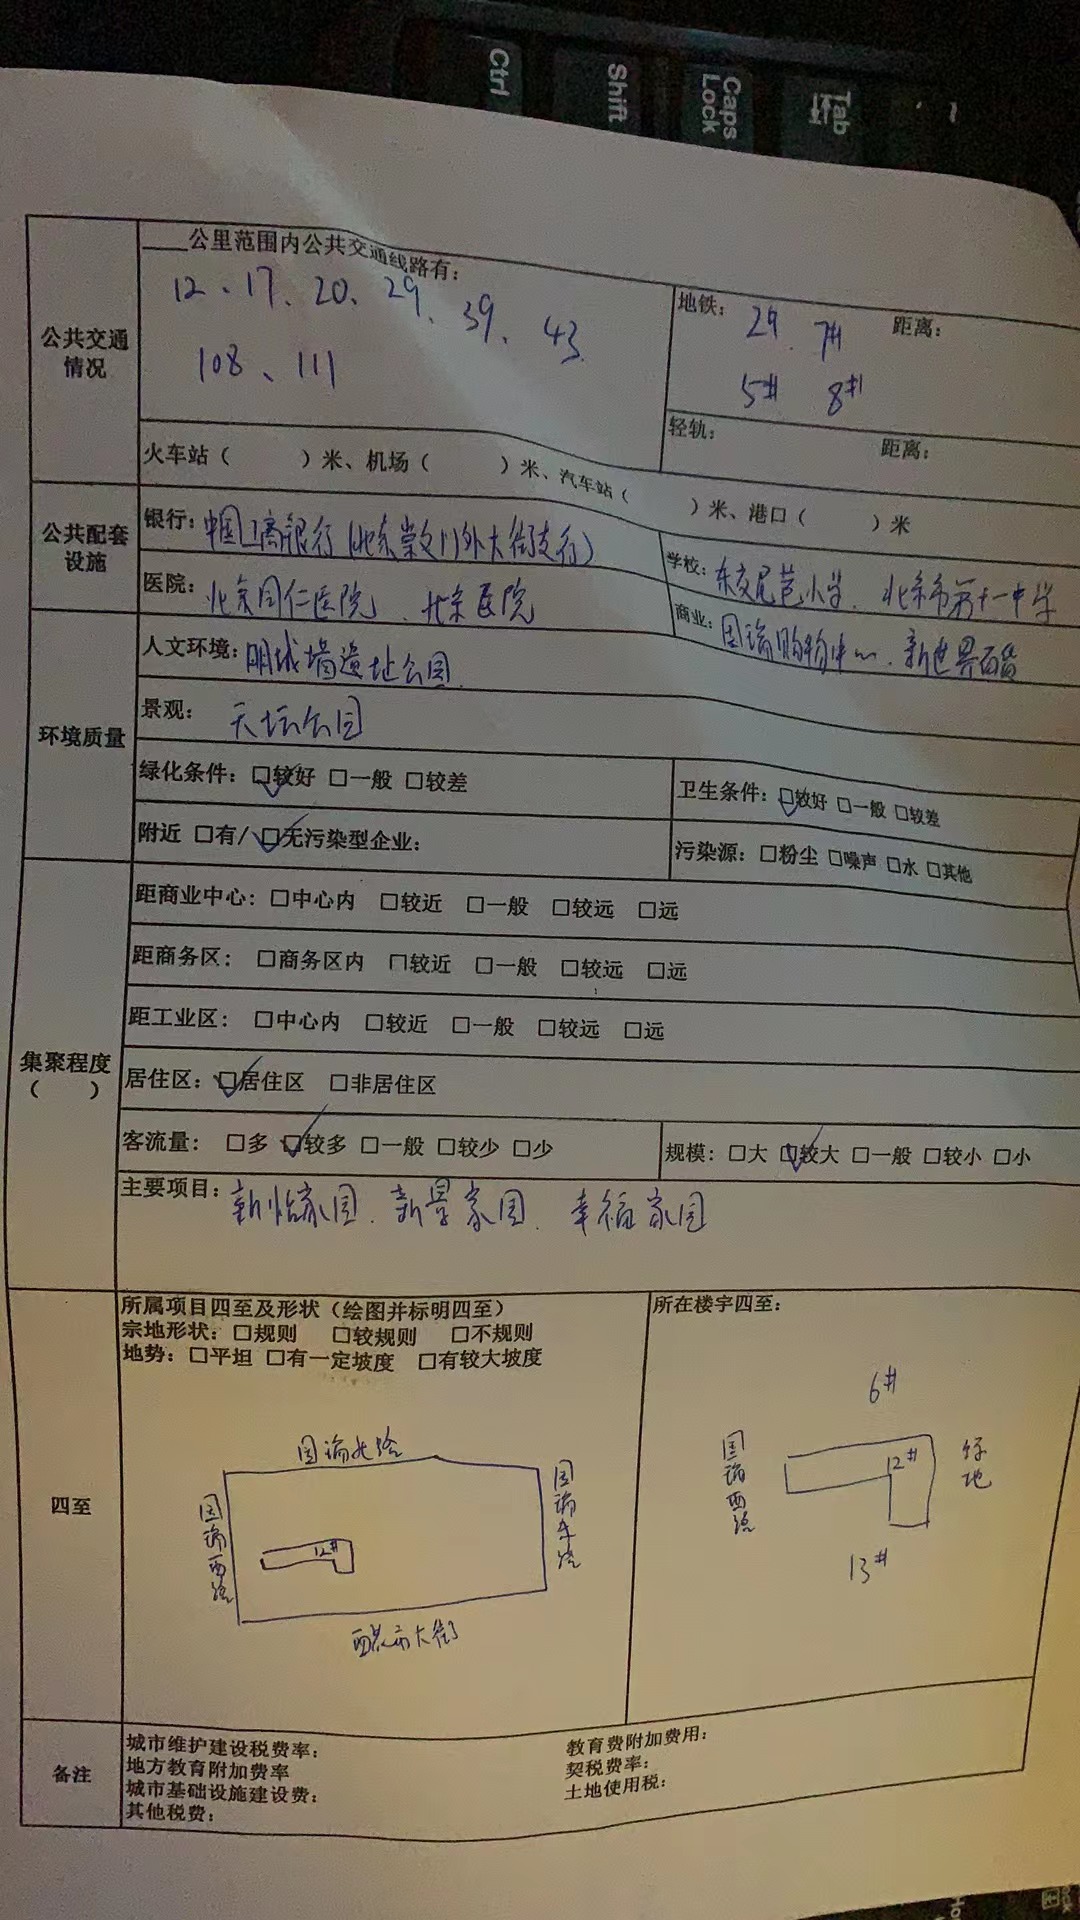 Ctrl Shift Caps Lock Tab
公共交通情况
___公里范围内公共交通线路有：
12、17、20、29、39、43
108、111
地铁： 2# 7# 距离：
5# 8#
轻轨： 距离：
火车站（ ）米、机场（ ）米、汽车站（ ）米、港口（ ）米
公共配套设施
银行：中国工商银行（北京崇文门外大街支行）
学校：东交民巷小学、北京市第十一中学
医院：北京同仁医院、北京医院
商业：国瑞购物中心、新世界百货
环境质量
人文环境：明城墙遗址公园
景观：天坛公园
绿化条件：☑较好 □一般 □较差
卫生条件：☑较好 □一般 □较差
附近 □有/☑无污染型企业：
污染源：□粉尘 □噪声 □水 □其他
集聚程度（ ）
距商业中心：□中心内 □较近 □一般 □较远 □远
距商务区：□商务区内 □较近 □一般 □较远 □远
距工业区：□中心内 □较近 □一般 □较远 □远
居住区：☑居住区 □非居住区
客流量：□多 ☑较多 □一般 □较少 □少
规模：□大 ☑较大 □一般 □较小 □小
主要项目：新怡家园、新景家园、幸福家园
四至
所属项目四至及形状（绘图并标明四至）
宗地形状：□规则 □较规则 □不规则
地势：□平坦 □有一定坡度 □有较大坡度
国瑞北路
国瑞西路
12#
国瑞东路
大街
所在楼宇四至：
6#
国瑞西路
12#
绿地
13#
备注
城市维护建设税费率：
教育费附加费用：
地方教育附加费率
契税费率：
城市基础设施建设费：
土地使用税：
其他税费：